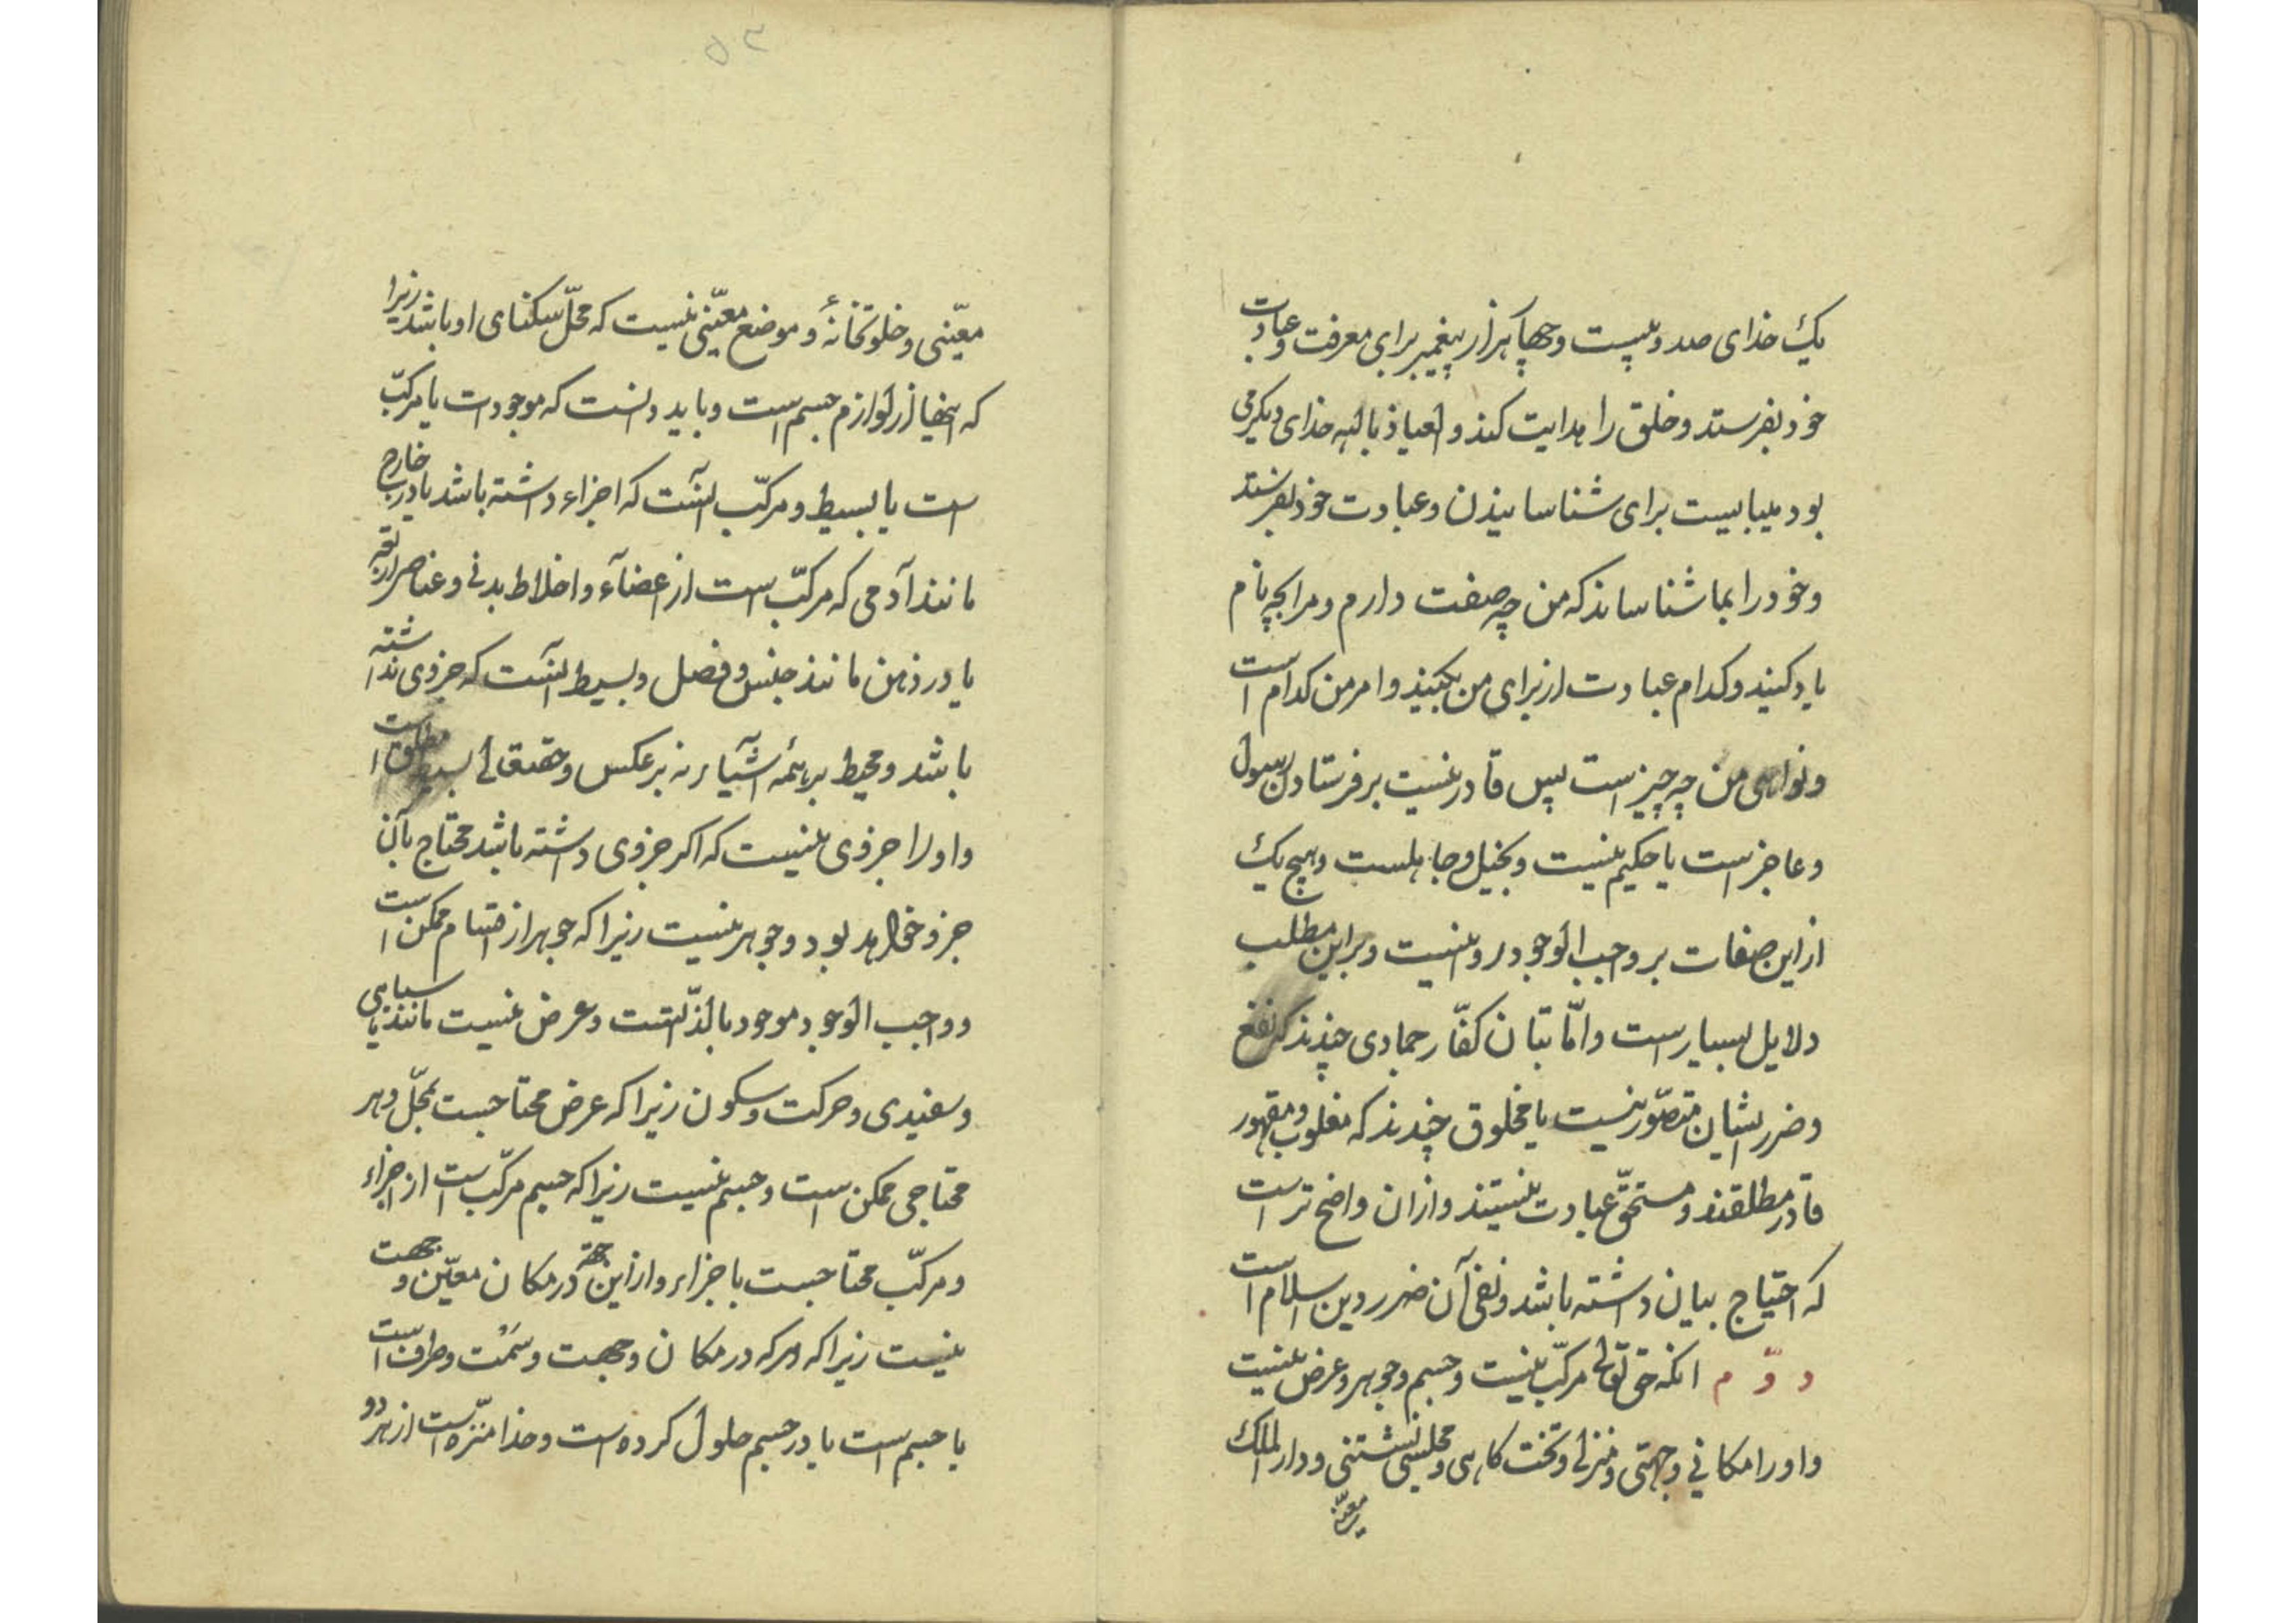 یک خدای صد و بیست و چهار هزار پیغمبر برای معرفت و عبادت
خود بفرستد و خلق را هدایت کند و العیاذ بالله خدای دیگر می
بود میبایست برای شناسانیدن و عبادت خود بفرستد
و خود را بما شناساند که من چه صفت دارم و مرا بچه نام
یاد کنید و کدام عبادت از برای من بکنید و امر من کدام است
و نواهی من چه چیز است پس قادر نیست بر فرستادن رسول
و عاجز است یا حکیم نیست و بخیل و جاهلست و هیچ یک
از این صفات بر واجب الوجود روا نیست و بر این مطلب
دلایل بسیار است و امّا بتان کفّار جمادی چندند که نفع
و ضرر ایشان متصوّر نیست یا مخلوق چندند که مغلوب و مقهور
قادر مطلقند و مستحقّ عبادت نیستند و از ان واضح تر است
که احتیاج ببیان داشته باشد و نفی آن ضرر دین اسلام است
دوّم انکه حق تعالی مرکّب نیست و جسم و جوهر و عرض نیست
و او را مکانی و جهتی و منزلی و تخت کاهی و مجلس نشستنی و دار الملک
معیّنی
۵۳
معیّنی و خلوتخانهٔ و موضع معیّنی نیست که محلّ سکنای او باشد زیرا
که اینها از لوازم جسم است و باید دانست که موجودات یا مرکّب
است یا بسیط و مرکّب آنست که اجزاء داشته باشد یا در خارج
مانند آدمی که مرکّب است از اعضآء و اخلاط بدنی و عناصر اربعه
یا در ذهن مانند جنس و فصل و بسیط آنست که جزوی نداشته
باشد و محیط بر همه اشیآء نه بر عکس و حقتعالی بسیط مطلق است
و او را جزوی نیست که اکر جزوی داشته باشد محتاج بآن
جزو خواهد بود و جوهر نیست زیرا که جوهر از اقسام ممکن است
و واجب الوجود موجود بالذّاتست و عرض نیست مانند سیاهی
و سفیدی و حرکت و سکون زیرا که عرض محتاجست بمحلّ و هر
محتاجی ممکن است و جسم نیست زیرا که جسم مرکّب است از اجزاء
و مرکّب محتاجست باجزاء و از این جهة در مکان معیّن و جهت
نیست زیرا که هر که در مکان و جهت و سَمْت و طرف است
یا جسم است یا در جسم حلول کرده است و خدا منزّه است از هر دو